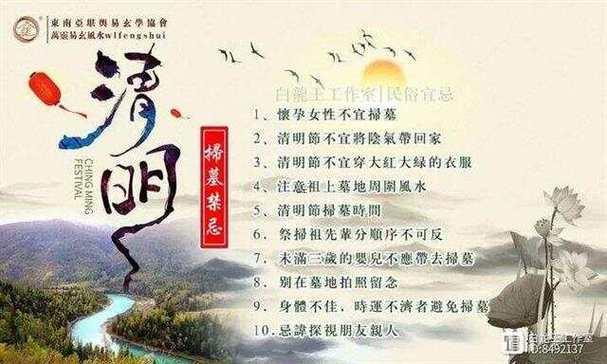 東南亞堪輿易玄學協會
萬靈易玄風水wlfengshui
清明
CHING MING
FESTIVAL
掃墓禁忌
白龍王工作室|民俗宜忌
1、懷孕女性不宜掃墓
2、清明節不宜將陰氣帶回家
3、清明節不宜穿大紅大綠的衣服
4、注意祖上墓地周圍風水
5、清明節掃墓時間
6、祭掃祖先輩分順序不可反
7、未滿三歲的嬰兒不應帶去掃墓
8、別在墓地拍照留念
9、身體不佳，時運不濟者避免掃墓
10、忌諱探視朋友親人
白龍王工作室
ID:8492137